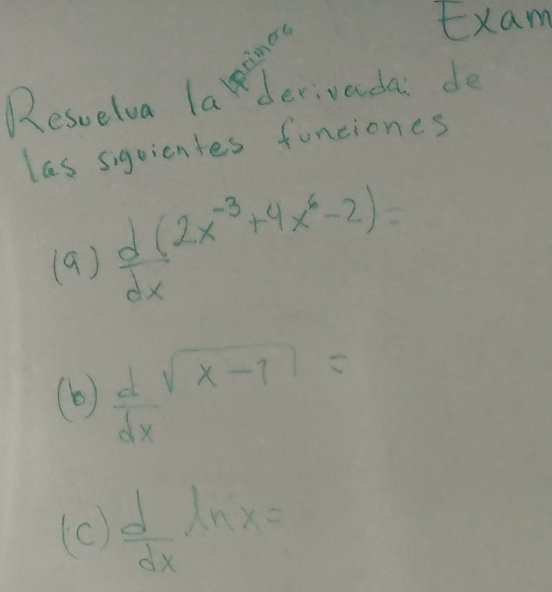 Exam
Resuelva la primera derivada: de
las siguientes funciones
(a) d/dx (2x^-3 + 4x^6 - 2) =
(b) d/dx √(x - 1) =
(c) d/dx ln x =